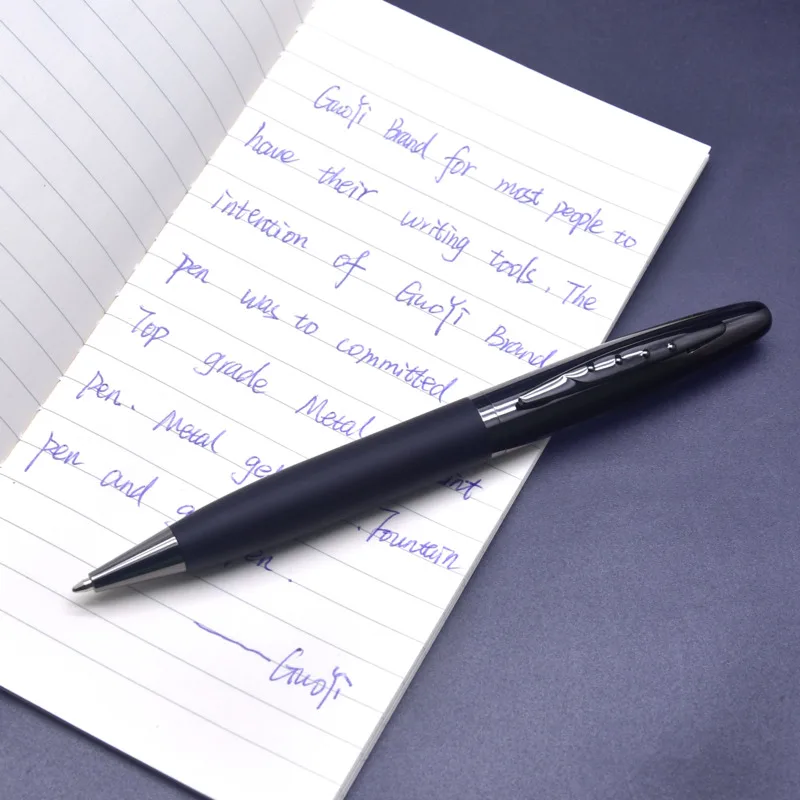 GuoYi Brand for most people to
have their writing tools. The
intention of GuoYi Brand
pen was to committed
Top grade Metal
pen. Metal
pen and . Fountain
.
— GuoYi